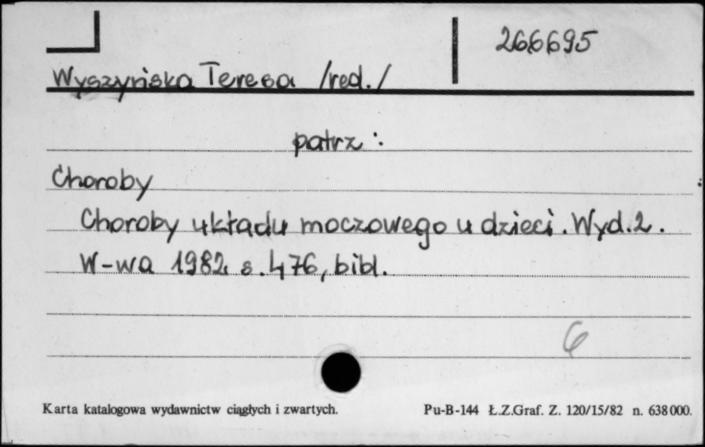 266695
Wyszyńska Teresa /red./
patrz:
Choroby
Choroby układu moczowego u dzieci. Wyd. 2.
W-wa 1982 s. 476, bibl.
6
Karta katalogowa wydawnictw ciągłych i zwartych. Pu-B-144 Ł.Z.Graf. Z. 120/15/82 n. 638000.